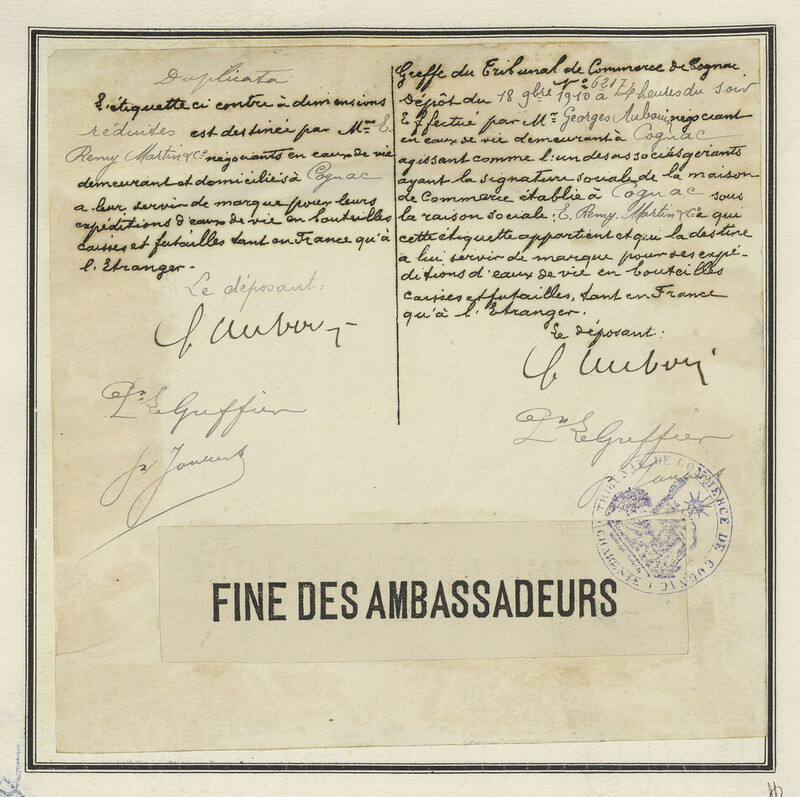 Duplicata
L'étiquette ci contre à dimensions
réduites est destinée par M.rs E.
Remy Martin & Co négociants en eaux de vie
demeurant et domiciliés à Cognac
a leur servir de marque pour leurs
expéditions d'eaux de vie en bouteilles
caisses et futailles tant en France qu'à
l'Etranger.
Le déposant:
Pr Le Greffier
Greffe du Tribunal de Commerce de Cognac
No 6217
Dépôt du 18 9bre 1910 à 4 heures du soir
Effectué par Mr Georges Auboin négociant
en eaux de vie demeurant à Cognac
agissant comme l'un des associés gérants
ayant la signature sociale de la maison
de Commerce établie à Cognac sous
la raison sociale: E. Remy Martin & Cie que
cette étiquette appartient et qui la destine
à lui servir de marque pour ses expé-
ditions d'eaux de vie en bouteilles
caisses et futailles, tant en France
qu'à l'Etranger.
Le déposant:
Pr Le Greffier
TRIBUNAL DE COMMERCE DE COGNAC
CHARENTE
FINE DES AMBASSADEURS